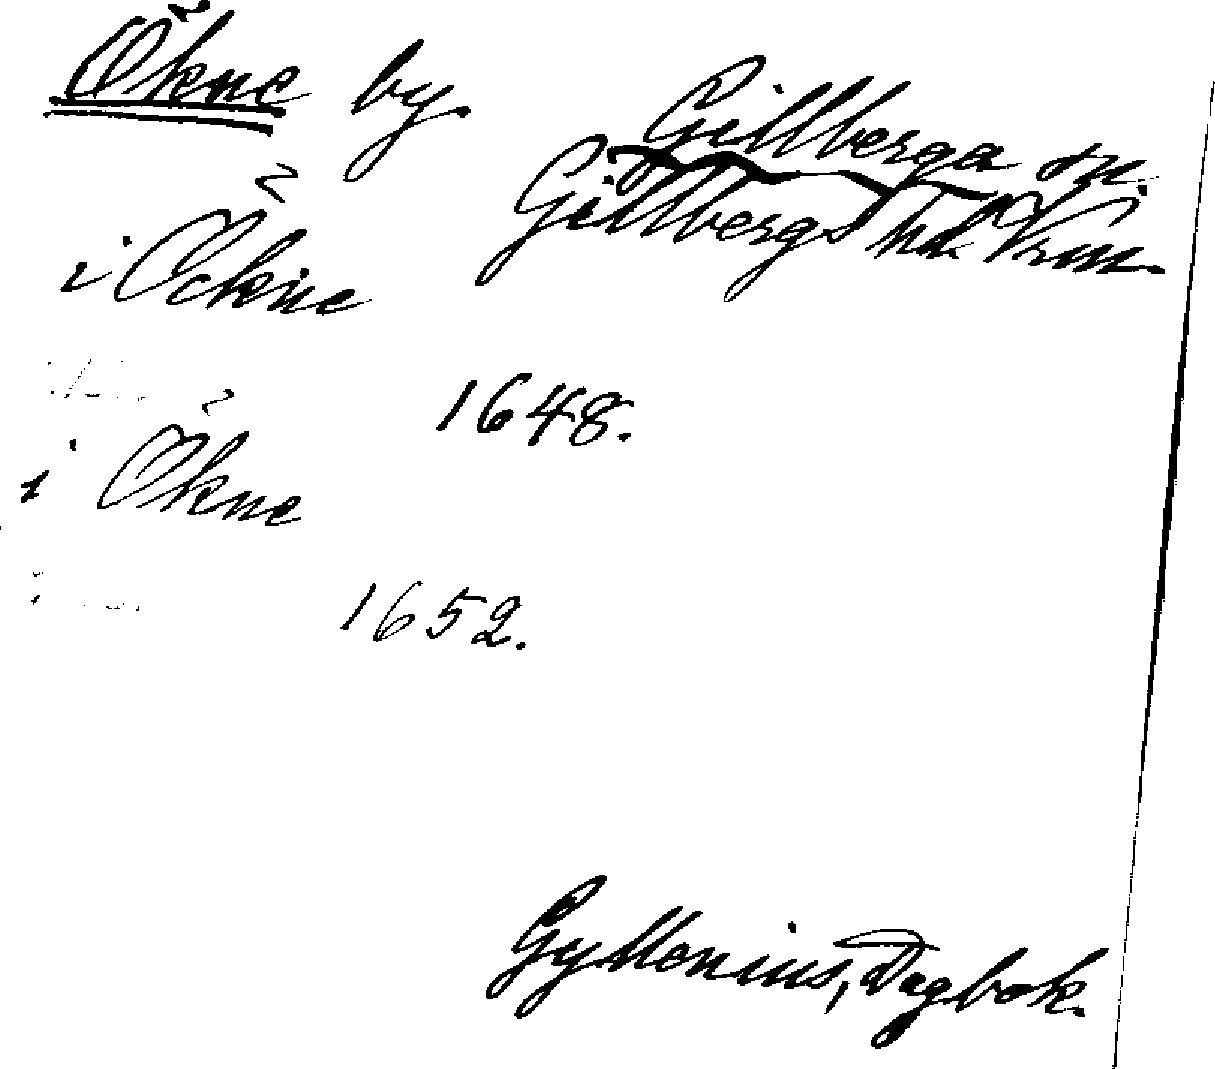 Ökne by.
Gillberga sn.
Gillbergs hd. Vrm.
i Öckne
1648.
i Ökne
1652.
Gyllenius, Dagbok.